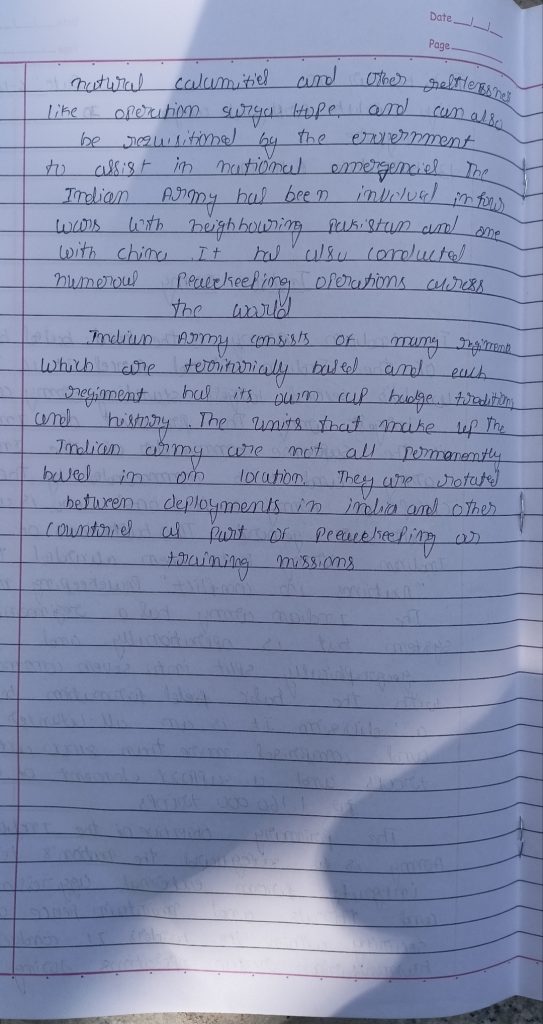 Date__/__/__
Page______
natural calamities and other restlessnes
like operation surya Hope, and can also
be requisitioned by the envernment
to assist in national emergencies The
Indian Army has been involved in four
wars with neighbouring pakistan and one
with china. It has also conducted
numerous Peacekeeping operations across
the world
Indian Army consists of many regimens
which are territorially based and each
regiment has its own cap badge tradition,
and history. The units that make up The
Indian army are not all permanently
based in on location. They are rotated
between deployments in india and other
countries as part of Peeacekeeping or
training missions